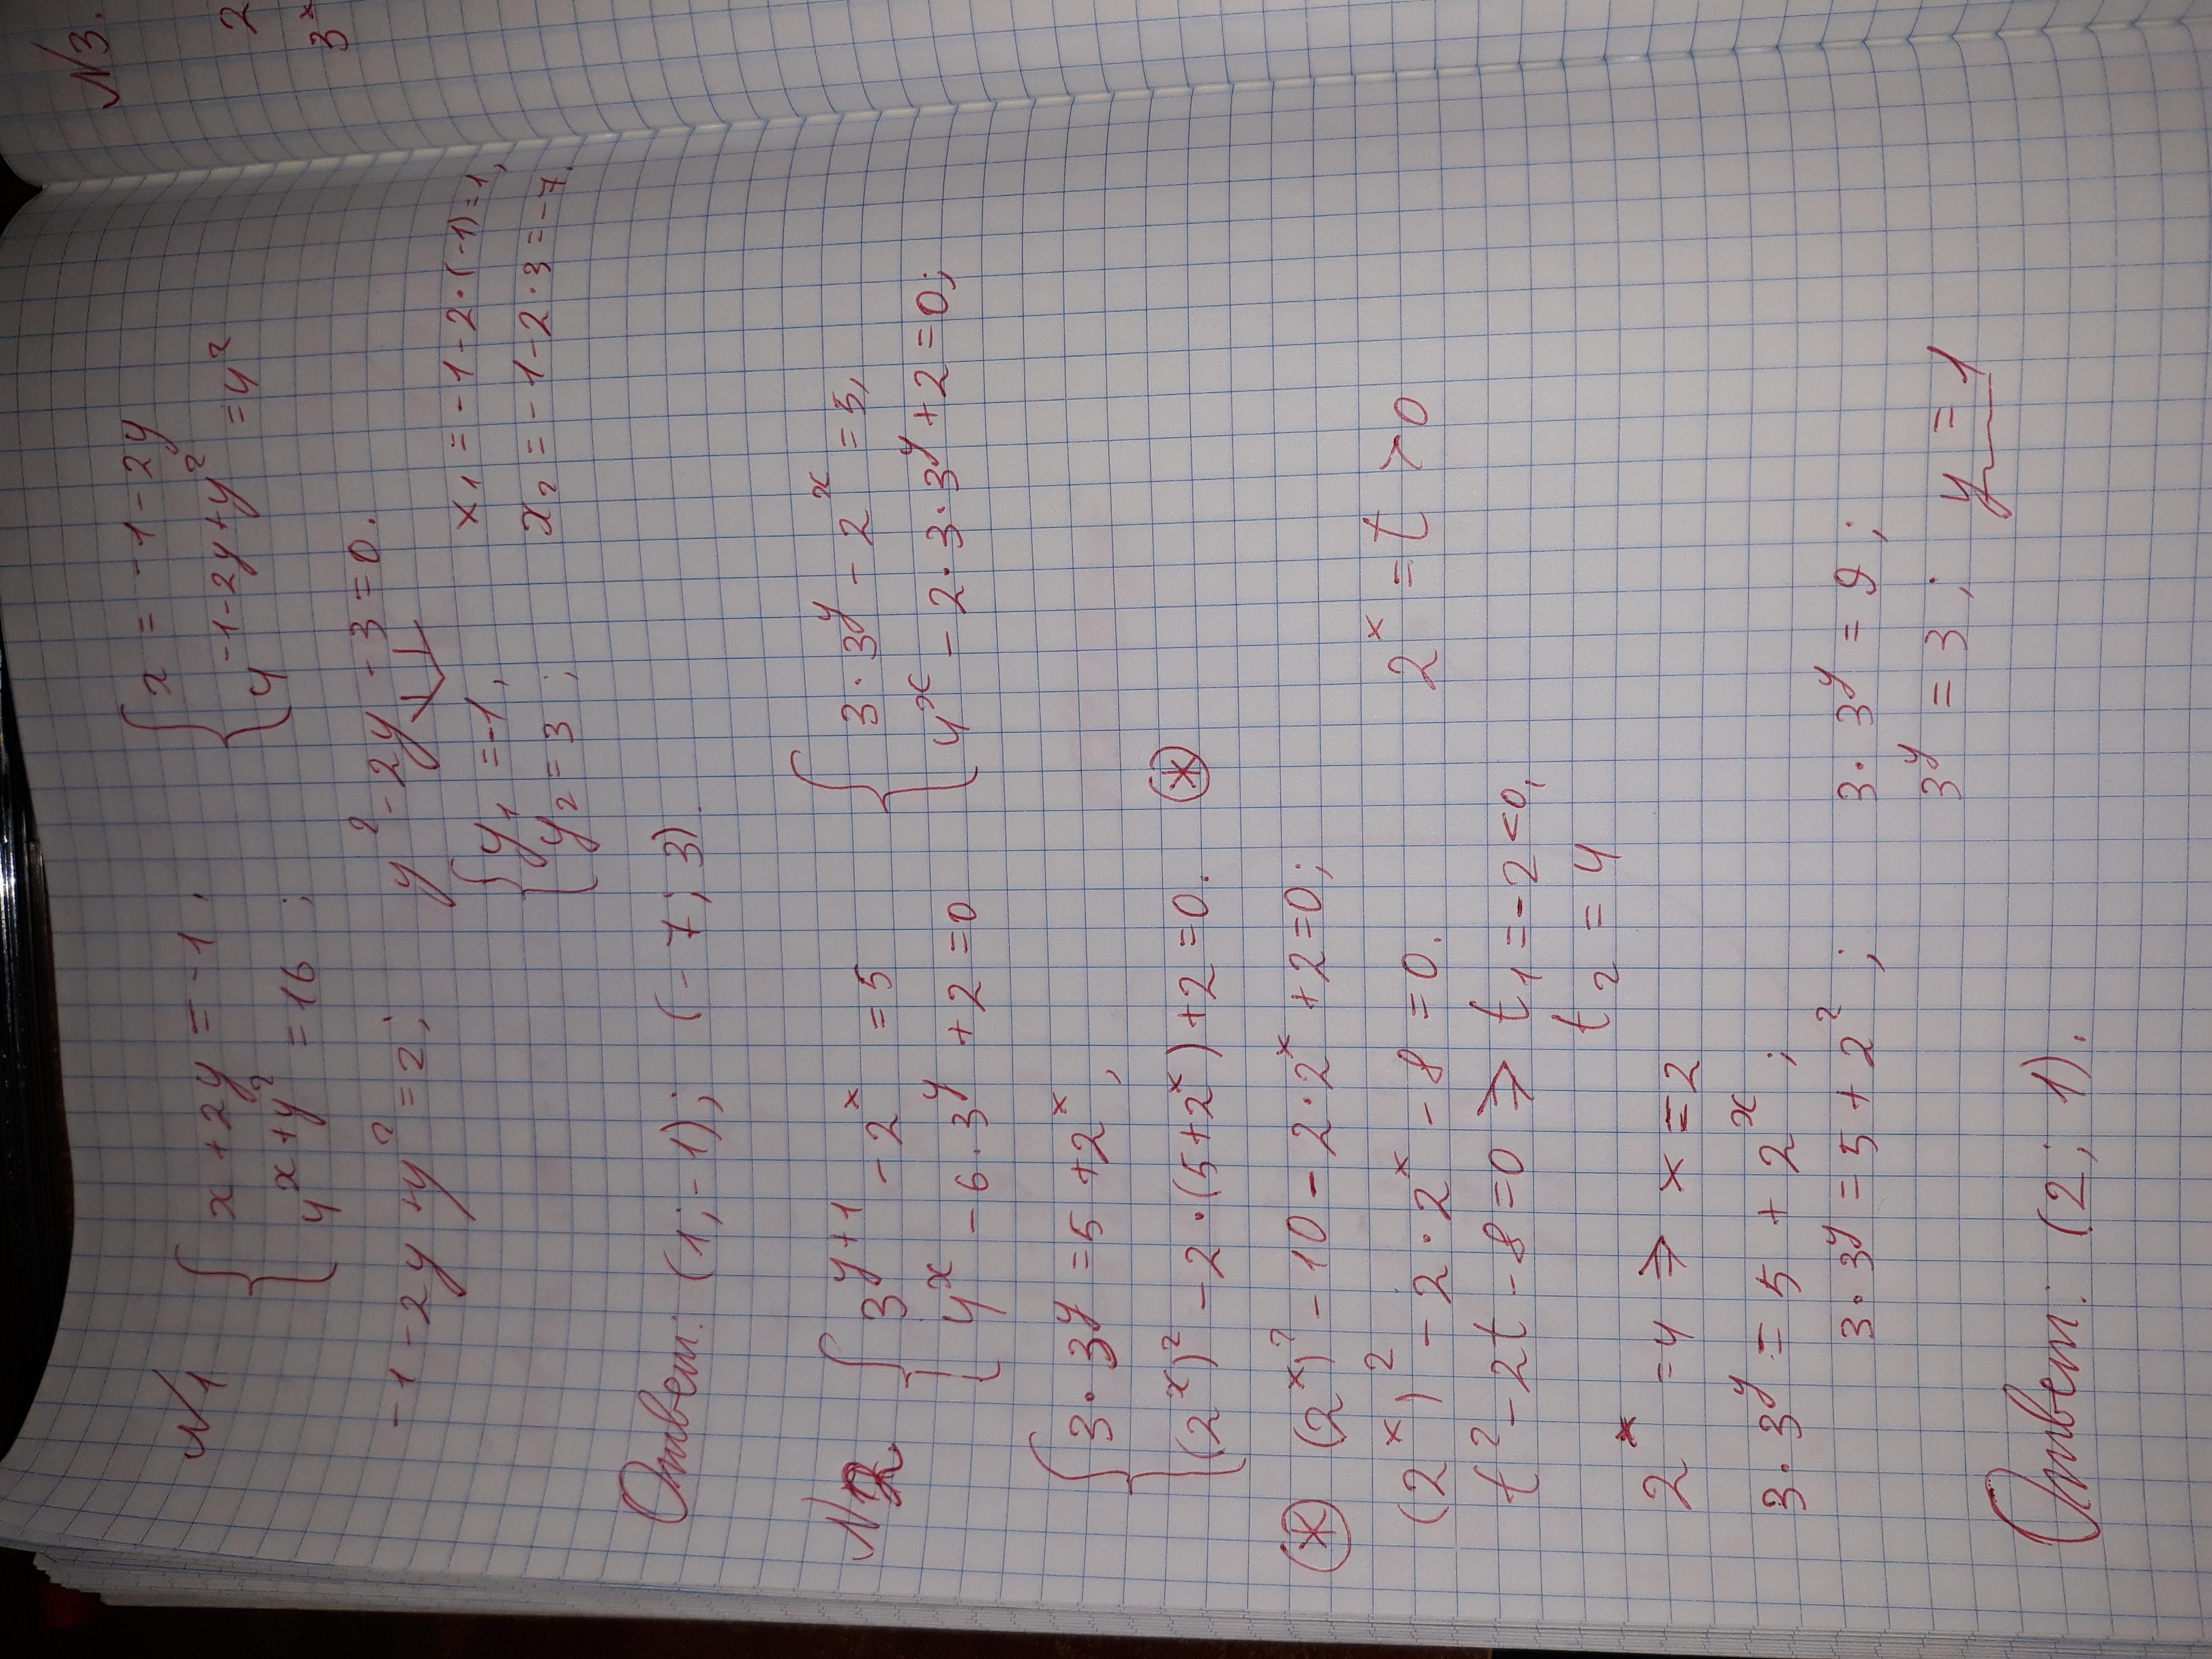 №1 { x + 2y = -1, { x = -1 - 2y
4^(x+y²) = 16; 4^(-1-2y+y²) = 4²
-1 - 2y + y² = 2; y² - 2y - 3 = 0.
{ y₁ = -1, x₁ = -1 - 2·(-1) = 1,
y₂ = 3; x₂ = -1 - 2·3 = -7.
Ответ: (1; -1); (-7; 3).
№2 { 3^(y+1) - 2^x = 5 { 3·3^y - 2^x = 5,
4^x - 6·3^y + 2 = 0 4^x - 2·3·3^y + 2 = 0;
{ 3·3^y = 5 + 2^x,
(2^x)² - 2·(5 + 2^x) + 2 = 0. (*)
(*) (2^x)² - 10 - 2·2^x + 2 = 0;
(2^x)² - 2·2^x - 8 = 0. 2^x = t > 0
t² - 2t - 8 = 0 ⇒ t₁ = -2 < 0,
t₂ = 4
2^x = 4 ⇒ x = 2
3·3^y = 5 + 2^x;
3·3^y = 5 + 2²; 3·3^y = 9;
3^y = 3; y = 1
Ответ: (2; 1).
№3.
2
3^x